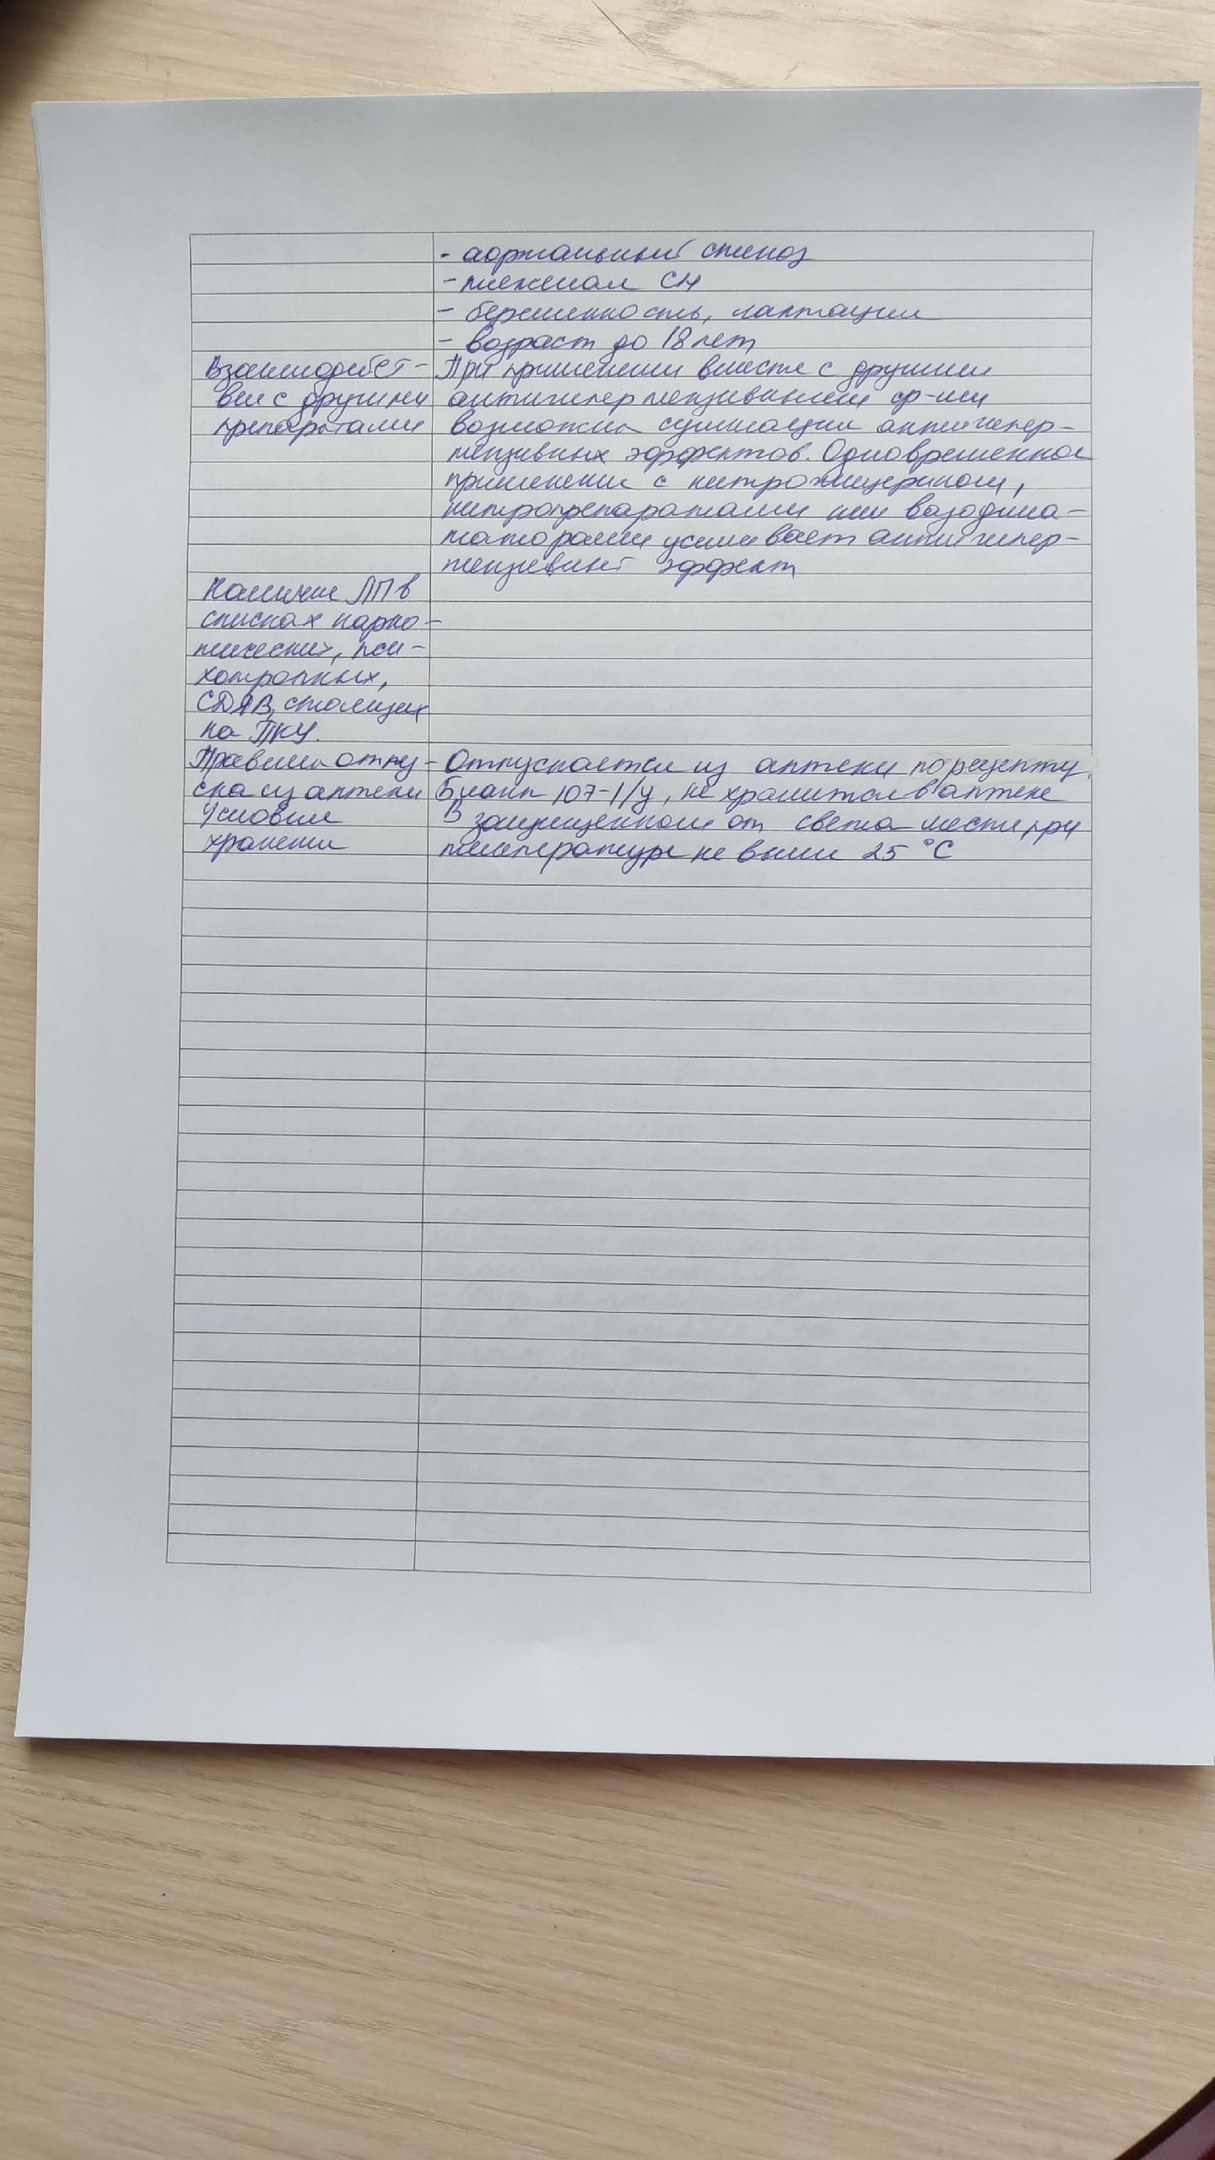 - аортальный стеноз
- тяжелая СН
- беременность, лактация
- возраст до 18 лет
Взаимодейст-
вие с другими
препаратами
При применении вместе с другими
антигипертензивными ср-ми
возможна суммация антигипер-
тензивных эффектов. Одновременное
применение с нитроглицерином,
нитропрепаратами или вазодила-
таторами усиливает антигипер-
тензивный эффект
Наличие ЛП в
списках нарко-
тических, пси-
хотропных,
СДЯВ, стоящих
на ПКУ.
-
Правила отпу-
ска из аптеки
Отпускается из аптеки по рецепту,
бланк 107-1/у, не хранится в аптеке
Условия
хранения
В защищенном от света месте при
температуре не выше 25 °С